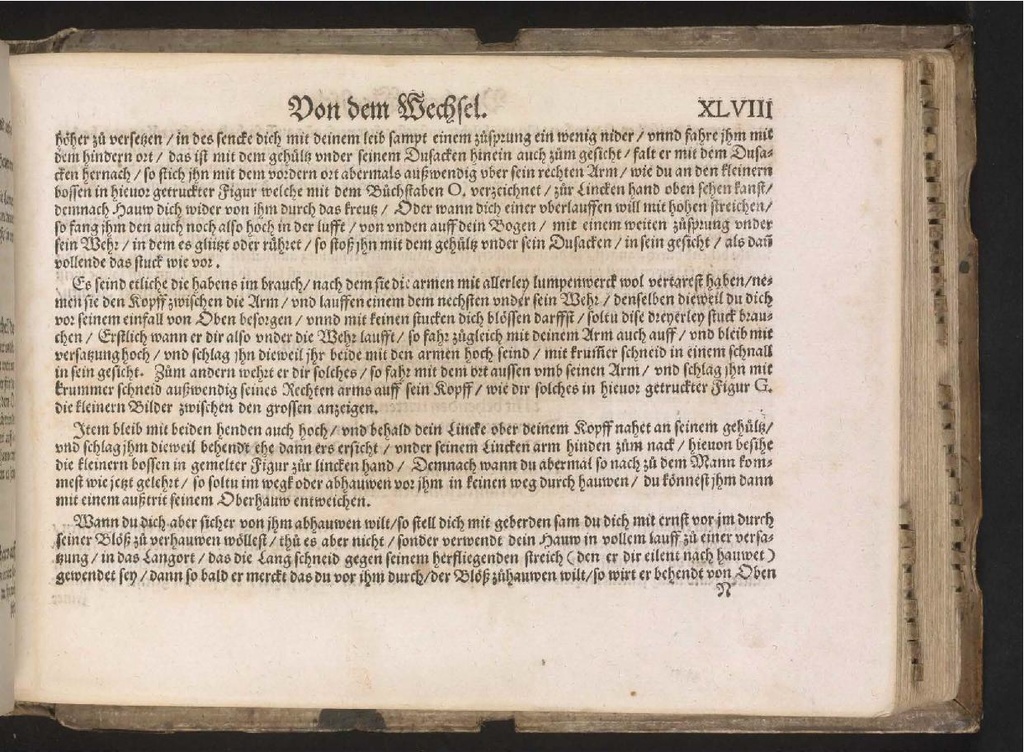 Von dem Wechsel. XLVIII
höher zů versetzen / in des sencke dich mit deinem leib sampt einem zůsprung ein wenig nider / vnnd fahre jhm mit
dem hindern ort / das ist mit dem gehültz vnder seinem Dusacken hinein auch zům gesicht / falt er mit dem Dusa-
cken hernach / so stich jhn mit dem vordern ort abermals außwendig vber sein rechten Arm / wie du an den kleinern
bossen in hieuor getruckter Figur welche mit dem Bůchstaben O. verzeichnet / zůr Lincken hand oben sehen kanst /
demnach Hauw dich wider von ihm durch das kreutz / Oder wann dich einer vberlauffen will mit hohen streichen /
so fang jhm den auch noch also hoch in der lufft / von vnden auff dein Bogen / mit einem weiten zůsprung vnder
sein Wehr / in dem es glützt oder rühret / so stoß jhn mit dem gehültz vnder sein Dusacken / in sein gesicht / als dañ
vollende das stuck wie vor.
Es seind etliche die habens im brauch / nach dem sie die armen mit allerley lumpenwerck wol vertarest haben / ne-
men sie den Kopff zwischen die Arm / vnd lauffen einem dem nechsten vnder sein Wehr / denselben dieweil du dich
vor seinem einfall von Oben besorgen / vnnd mit keinen stucken dich blössen darffst / soltu dise dreyerley stuck brau-
chen / Erstlich wann er dir also vnder die Wehr laufft / so fahr zůgleich mit deinem Arm auch auff / vnd bleib mit
versatzung hoch / vnd schlag jhn dieweil jhr beide mit den armen hoch seind / mit krum̃er schneid in einem schnall
in sein gesicht. Zům andern wehrt er dir solches / so fahr mit dem ort aussen vmb seinen Arm / vnd schlag jhn mit
krummer schneid außwendig seines Rechten arms auff sein Kopff / wie dir solches in hieuor getruckter Figur G.
die kleinern Bilder zwischen den grossen anzeigen.
Item bleib mit beiden henden auch hoch / vnd behald dein Lincke ober deinem Kopff nahet an seinem gehültz /
vnd schlag jhm dieweil behendt ehe dann ers ersicht / vnder seinem Lincken arm hinden zům nack / hieuon besihe
die kleinern bossen in gemelter Figur zůr lincken hand / Demnach wann du abermal so nach zů dem Mann kom-
mest wie jetzt gelehrt / so soltu im wegk oder abhauwen vor jhm in keinen weg durch hauwen / du könnest jhm dann
mit einem außtrit seinem Oberhauw entweichen.
Wann du dich aber sicher von jhm abhauwen wilt / so stell dich mit geberden sam du dich mit ernst vor jm durch
seiner Blöß zů verhauwen wöllest / thů es aber nicht / sonder verwendt dein Hauw in vollem lauff zů einer versa-
tzung / in das Langort / das die Lang schneid gegen seinem herfliegenden streich (den er dir eilent nach hauwet)
gewendet sey / dann so bald er merckt das du vor ihm durch / der Blöß zůhauwen wilt / so wirt er behendt von Oben
N